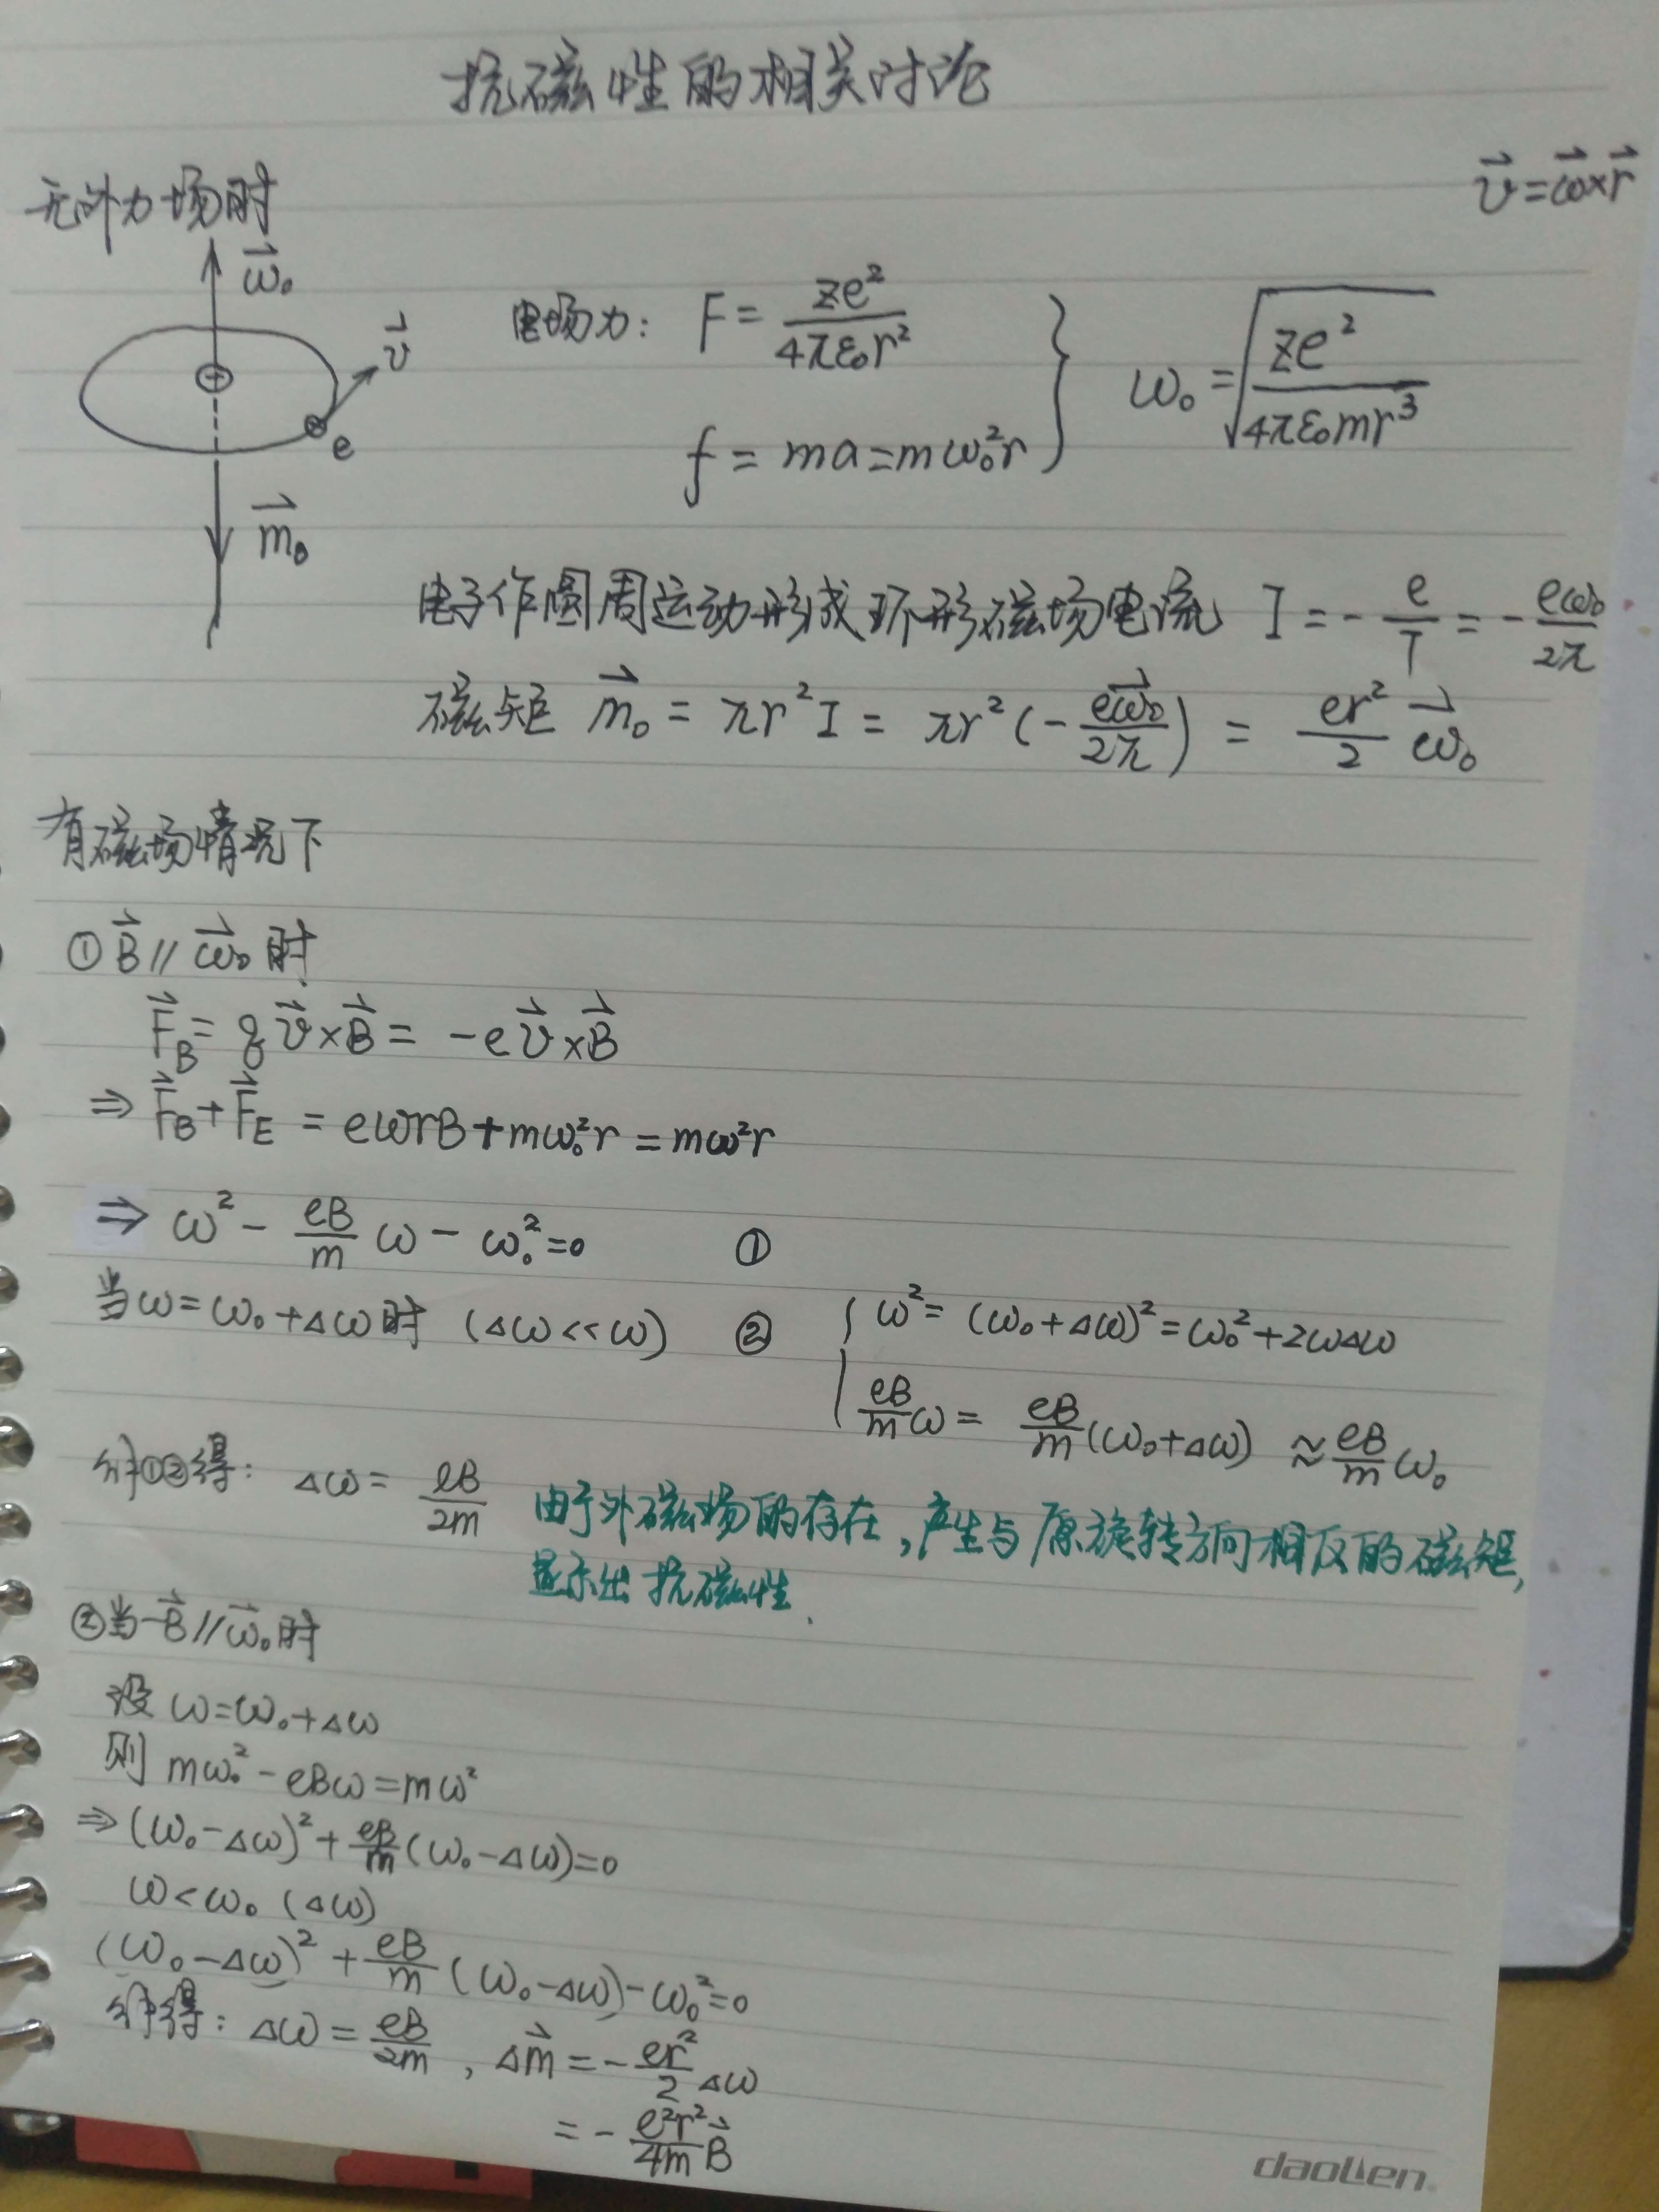 抗磁性的相关讨论
无外力场时
v⃗=ω⃗×r⃗
ω⃗₀
v⃗
+
e
m⃗₀
电场力: F = ze²/(4πε₀r²)
f = ma = mω₀²r
ω₀ = √(ze²/(4πε₀mr³))
电子作圆周运动形成环形磁场电流 I = - e/T = - eω₀/2π
磁矩 m⃗₀ = πr²I = πr²(- eω⃗₀/2π) = er²/2 ω⃗₀
有磁场情况下
① B⃗ // ω⃗₀ 时
F⃗_B = q v⃗×B⃗ = -e v⃗×B⃗
⇒ F⃗_B + F⃗_E = eωrB + mω₀²r = mω²r
⇒ ω² - eB/m ω - ω₀² = 0 ①
当ω = ω₀ + Δω时 (Δω << ω) ②
{ ω² = (ω₀+Δω)² = ω₀² + 2ωΔω
eB/m ω = eB/m (ω₀+Δω) ≈ eB/m ω₀
解①②得: Δω = eB/2m
由于外磁场的存在,产生与原旋转方向相反的磁矩,
显示出抗磁性.
②当-B⃗ // ω⃗₀时
设 ω=ω₀+Δω
则 mω₀² - eBω = mω²
⇒ (ω₀-Δω)² + eB/m (ω₀-Δω) = 0
ω < ω₀ (Δω)
(ω₀-Δω)² + eB/m (ω₀-Δω) - ω₀² = 0
解得: Δω = eB/2m , Δm⃗ = - er²/2 Δω
= - e²r²/4m B⃗
daolien